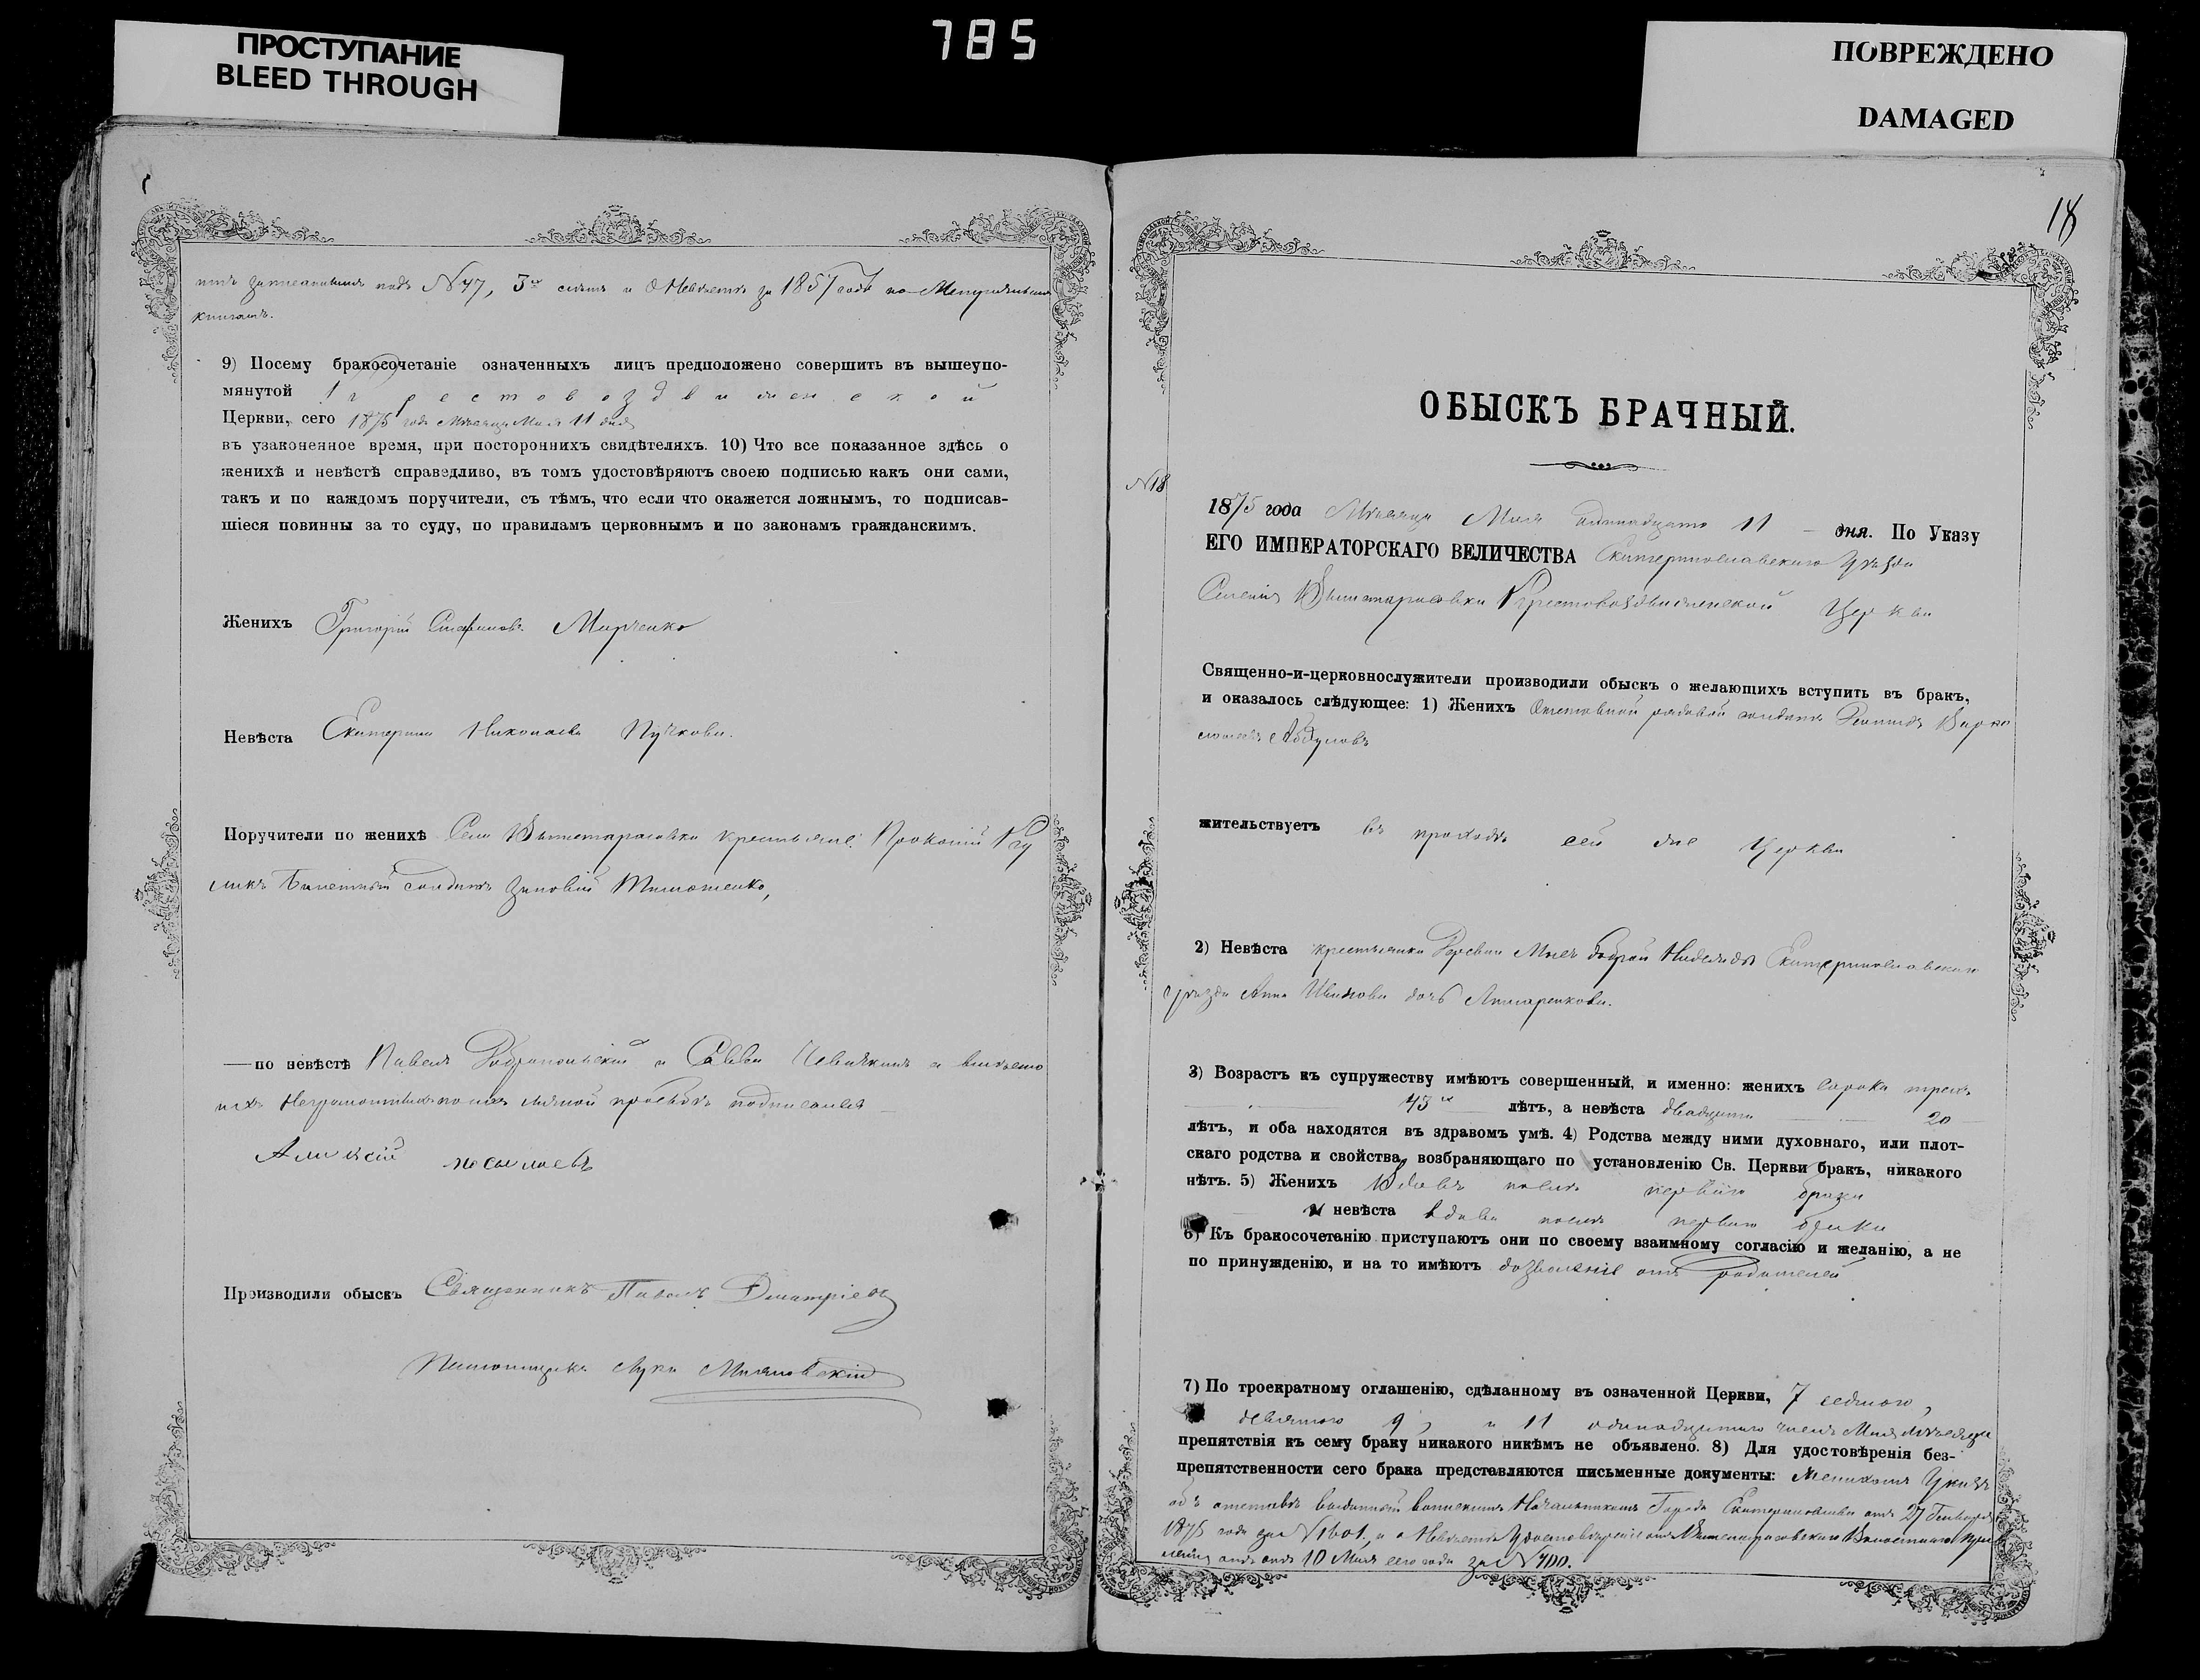 ПРОСТУПАНИЕ
BLEED THROUGH
785
ПОВРЕЖДЕНО
DAMAGED
18
подъ № 47, и о Невѣстѣ за 1857 годъ по
книгамъ.
9) Посему бракосочетаніе означенныхъ лицъ предположено совершить въ вышеупо-
мянутой Крестовоздвиженской
Церкви, сего 1875 года Мѣсяца Мая 11 дня
въ узаконенное время, при постороннихъ свидѣтеляхъ. 10) Что все показанное здѣсь о
женихѣ и невѣстѣ справедливо, въ томъ удостовѣряютъ своею подписью какъ они сами,
такъ и по каждомъ поручители, съ тѣмъ, что если что окажется ложнымъ, то подписав-
шіеся повинны за то суду, по правиламъ церковнымъ и по законамъ гражданскимъ.
Женихъ Григорій Марченко
Невѣста Екатерина Николаева Пучкова.
Поручители по женихѣ Села Вышетарасовки крестьяне: Прокопій
Билетный солдатъ Зиновій Тимошенко,
—по невѣстѣ Павелъ и Савва а вмѣсто
ихъ Неграмотныхъ по ихъ личной прозьбѣ подписался
Аликсій
Производили обыскъ Священникъ Павелъ Дмитріевъ
Псаломщикъ Лука
ОБЫСКЪ БРАЧНЫЙ.
№ 18
1875 года Мѣсяца Мая одинадцато 11 — дня. По Указу
ЕГО ИМПЕРАТОРСКАГО ВЕЛИЧЕСТВА Екатеринославскаго Уѣзда
Селенія Вышетарасовки Крестовоздвиженской Церкви
Священно-и-церковнослужители производили обыскъ о желающихъ вступить въ бракъ,
и оказалось слѣдующее: 1) Женихъ Отставной рядовой солдатъ
жительствуетъ въ приходѣ сей же Церкви
2) Невѣста крестьянка Деревни Екатеринославскаго
уѣзда Анна Иванова дочь
3) Возрастъ къ супружеству имѣютъ совершенный, и именно: женихъ сорока трехъ
43 хъ лѣтъ, а невѣста двадцати 20
лѣтъ, и оба находятся въ здравомъ умѣ. 4) Родства между ними духовнаго, или плот-
скаго родства и свойства, возбраняющаго по установленію Св. Церкви бракъ, никакого
нѣтъ. 5) Женихъ Вдовъ послѣ перваго брака
и невѣста вдова послѣ перваго брака
6) Къ бракосочетанію приступаютъ они по своему взаимному согласію и желанію, а не
по принужденію, и на то имѣютъ дозволеніе отъ родителей
7) По троекратному оглашенію, сдѣланному въ означенной Церкви, 7 седмого,
девятого 9, и 11 одинадцатаго числъ Мая мѣсяца
препятствія къ сему браку никакого никѣмъ не объявлено. 8) Для удостовѣренія без-
препятственности сего брака представляются письменные документы: Женихомъ Указъ
объ отставкѣ выданный воинскимъ Начальникомъ Города Екатеринослава отъ 27 Генваря
1875 года за № 1601, и о Невѣстѣ Удостовѣреніе отъ Вышетарасовскаго Волостнаго
отъ 10 Мая сего года за № 700.